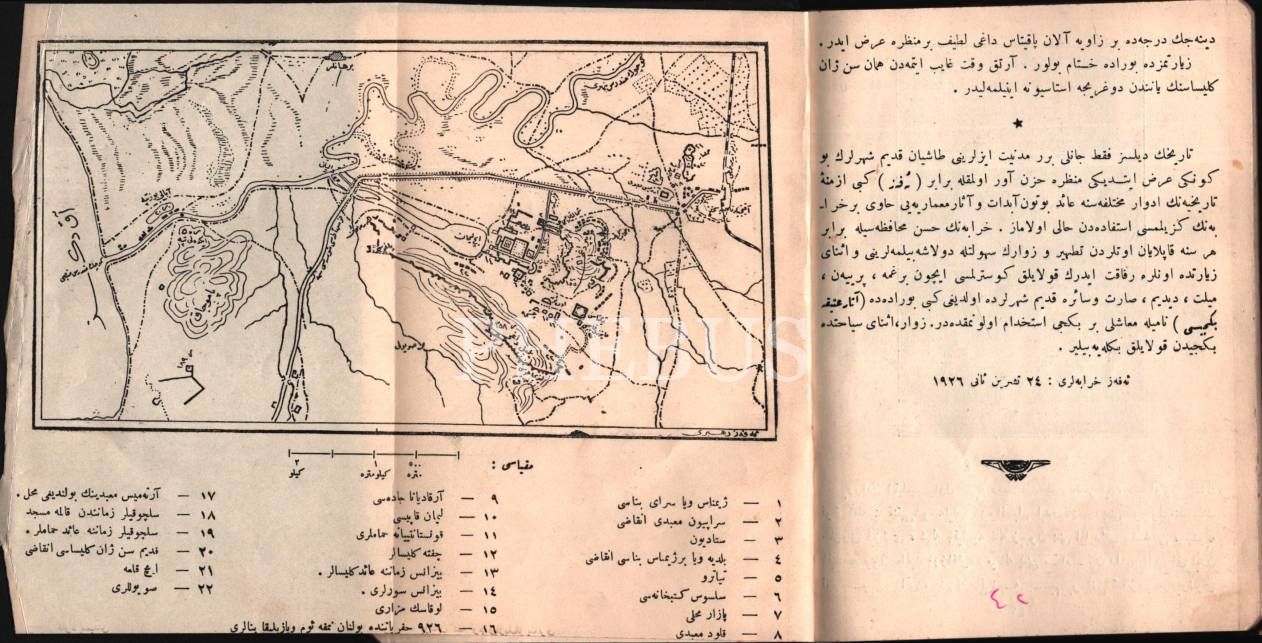 دینه‌جك درجه‌ده بر زاویه آلان پاقیتاس داغی لطیف برمنظره عرض ایدر .
زیارتمزده بوراده ختام بولور . آرتق وقت غایب ایتمه‌دن همان سن ژان
كلیساسنك یانندن دوغریجه استاسیونه اینیلمه‌لیدر .
★
تاریخك دیلسز فقط جانلی برر مدنیت ایزلرینی طاشیان قدیم شهرلرك بو
كونكی عرض ایتدیكی منظره حزن آور اولمقله برابر ( ) كبی ازمنهٔ
تاریخیه‌نك ادوار مختلفه‌سنه عائد بوتون آبدات و آثار معماریه‌یی حاوی برخرا-
به‌نك كزیلمسی استفاده‌دن خالی اولاماز . خرابه‌نك حسن محافظه‌سیله برابر
هر سنه قاپلایان اوتلردن تطهیر و زوارك سهولتله دولاشه‌بیلمه‌لرینی و اثنای
زیارتده اونلره رفاقت ایدرك قولایلق كوسترلمسی ایچون برغمه ، پرییه‌ن ،
میلت ، دیدیم ، صارت وسائره قدیم شهرلرده اولدیغی كبی بوراده‌ده (آثار عتیقه
بكجیسی ) نامیله معاشلی بر بكجی استخدام اولونمقده‌در. زوار، اثنای سیاحتده
بكجیدن قولایلق بكله‌یه‌بیلیر .
ئه‌فه‌ز خرابه‌لری : ٢٤ تشرین ثانی ١٩٢٦
٤٢
برهانلر
مقیاسی :
٥٠٠ متره
١ كیلومتره
٢ كیلو
١ — ژیمناس ویا سرای بناسی
٢ — سراپیون معبدی انقاضی
٣ — ستادیون
٤ — بلدیه ویا برژیمناس بناسی انقاضی
٥ — تیاترو
٦ — سلسوس كتبخانه‌سی
٧ — پازار محلی
٨ — قلود معبدی
٩ — آرقادیانا جاده‌سی
١٠ — لیمان قاپیسی
١١ — قونستانتنیانه حماملری
١٢ — چفته كلیسالر
١٣ — بیزانس زماننه عائد كلیسالر .
١٤ — بیزانس سورلری .
١٥ — لوقاسك مزاری
١٦ — ٩٢٦ حفریاتنده بولنان نمفه ئوم وبازیلیقا بنالری
١٧ — آرته‌میس معبدینك بولندیغی محل .
١٨ — سلجوقیلر زمانندن قالمه مسجد
١٩ — سلجوقیلر زماننه عائد حماملر .
٢٠ — قدیم سن ژان كلیساسی انقاضی
٢١ — ایچ قلعه
٢٢ — صو یوللری
PHEBUS